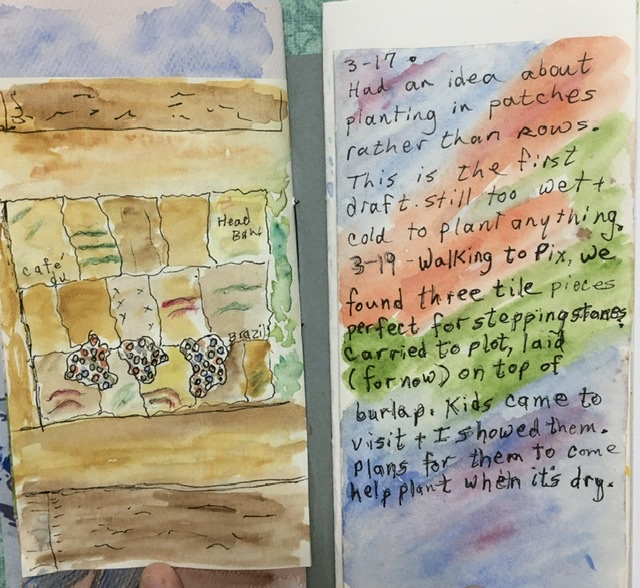 Head
Bank
Café
au
Brazil
3-17.
Had an idea about
planting in patches
rather than rows.
This is the first
draft. still too wet +
cold to plant anything.
3-19 - Walking to Pix, we
found three tile pieces
perfect for stepping stones
Carried to plot, laid
(for now) on top of
burlap. Kids came to
visit + I showed them.
Plans for them to come
help plant when it's dry.